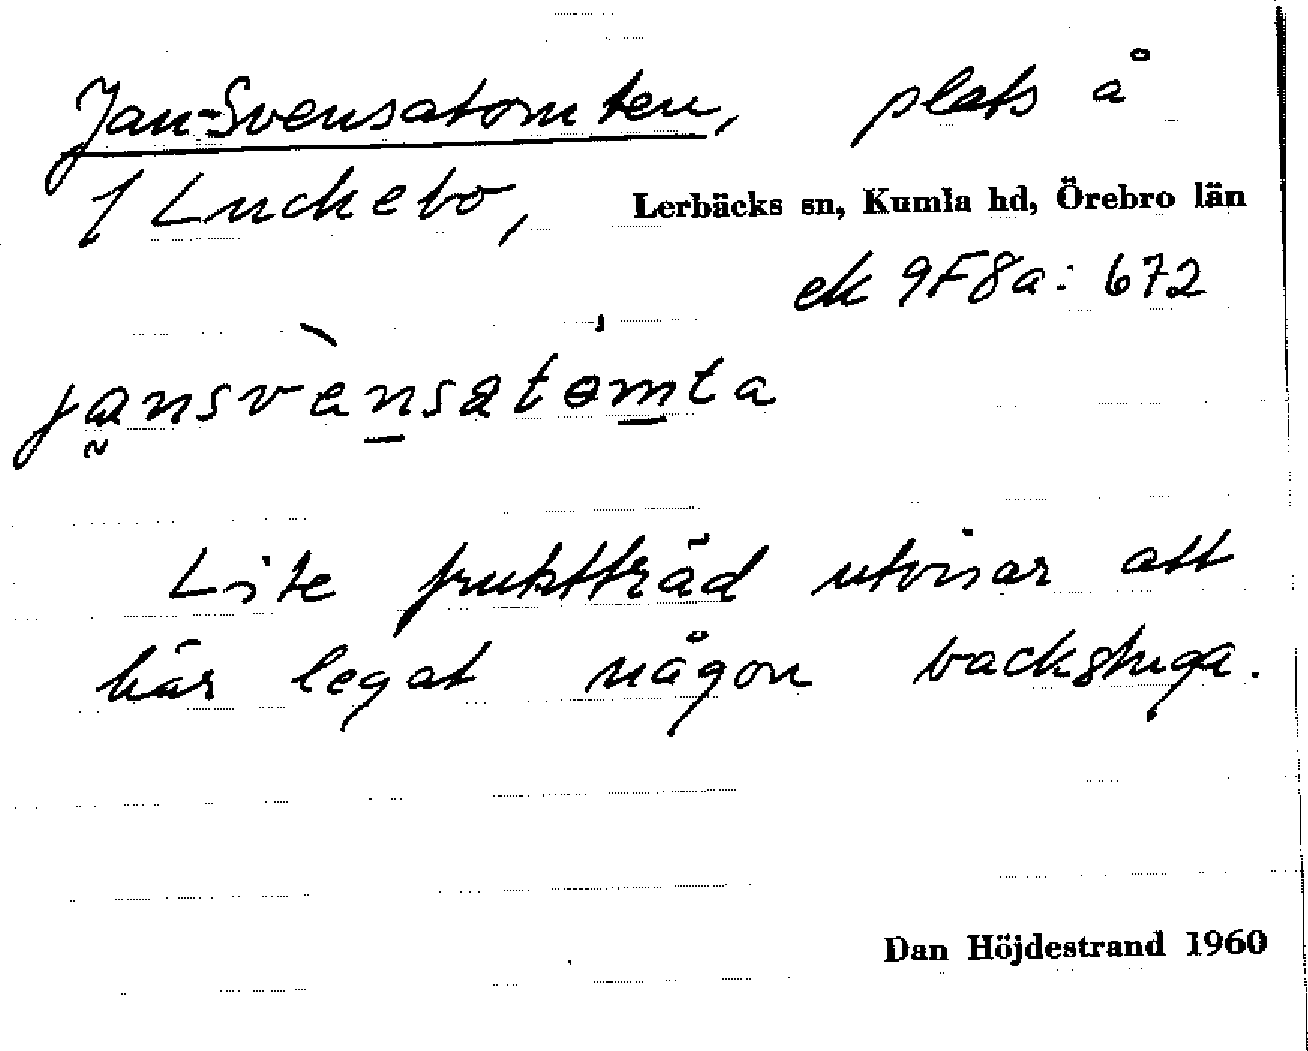 Jan-Svensatomten, plats å
/ Luckebo, Lerbäcks sn, Kumla hd, Örebro län
ek 9F8a: 672
jansvènsatomta
Lite fruktträd utvisar att
här legat någon backstuga.
Dan Höjdestrand 1960